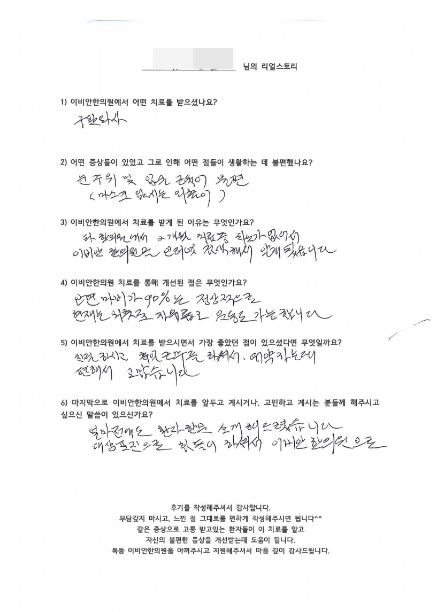 님의 리얼스토리
1) 이비안한의원에서 어떤 치료를 받으셨나요?
구안와사
2) 어떤 증상들이 있었고 그로 인해 어떤 점들이 생활하는 데 불편했나요?
눈 주위 및 입술 근육이 불편
(마스크 없이는 외출이 )
3) 이비안한의원에서 치료를 받게 된 이유는 무엇인가요?
타 한의원에서 2개월 치료중 효과가 없어서
이비안 한의원을 인터넷 검색해서 알게 됐습니다
4) 이비안한의원 치료를 통해 개선된 점은 무엇인가요?
안면 마비가 90%는 정상적으로
현재는 외출도 자유롭고 운동도 가능합니다
5) 이비안한의원에서 치료를 받으시면서 가장 좋았던 점이 있으셨다면 무엇일까요?
친절하시고 해주셔서.
편해서 고맙습니다
6) 마지막으로 이비안한의원에서 치료를 앞두고 계시거나, 고민하고 계시는 분들께 해주시고
싶으신 말씀이 있으신가요?
얼마전에도 환자 한분 소개해드렸습니다
대상포진으로 이비안 한의원으로
후기를 작성해주셔서 감사합니다.
부담갖지 마시고, 느낀 점 그대로를 편하게 작성해주시면 됩니다^^
같은 증상으로 고통 받고있는 환자들이 이 치료를 알고
자신의 불편한 증상을 개선받는데 도움이 됩니다.
목동 이비안한의원을 아껴주시고 지원해주셔서 마음 깊이 감사드립니다.